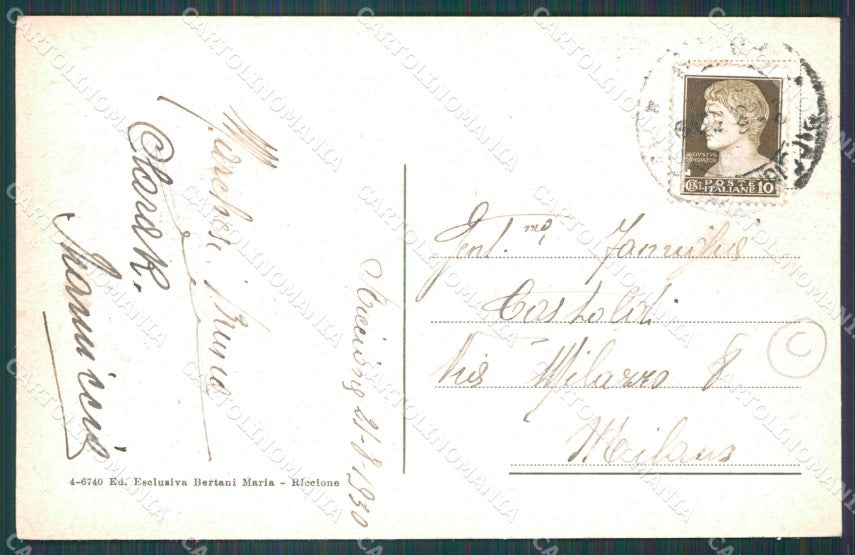 Marchesi Bruno
Riccione 21-8-1930
Gent.ma Famiglia
Castoldi
Via Milazzo 8
Milano
AVGVSTVS
POSTE
CENT. ITALIANE 10
C
4-6740 Ed. Esclusiva Bertani Maria - Riccione
CARTOLINOMANIA